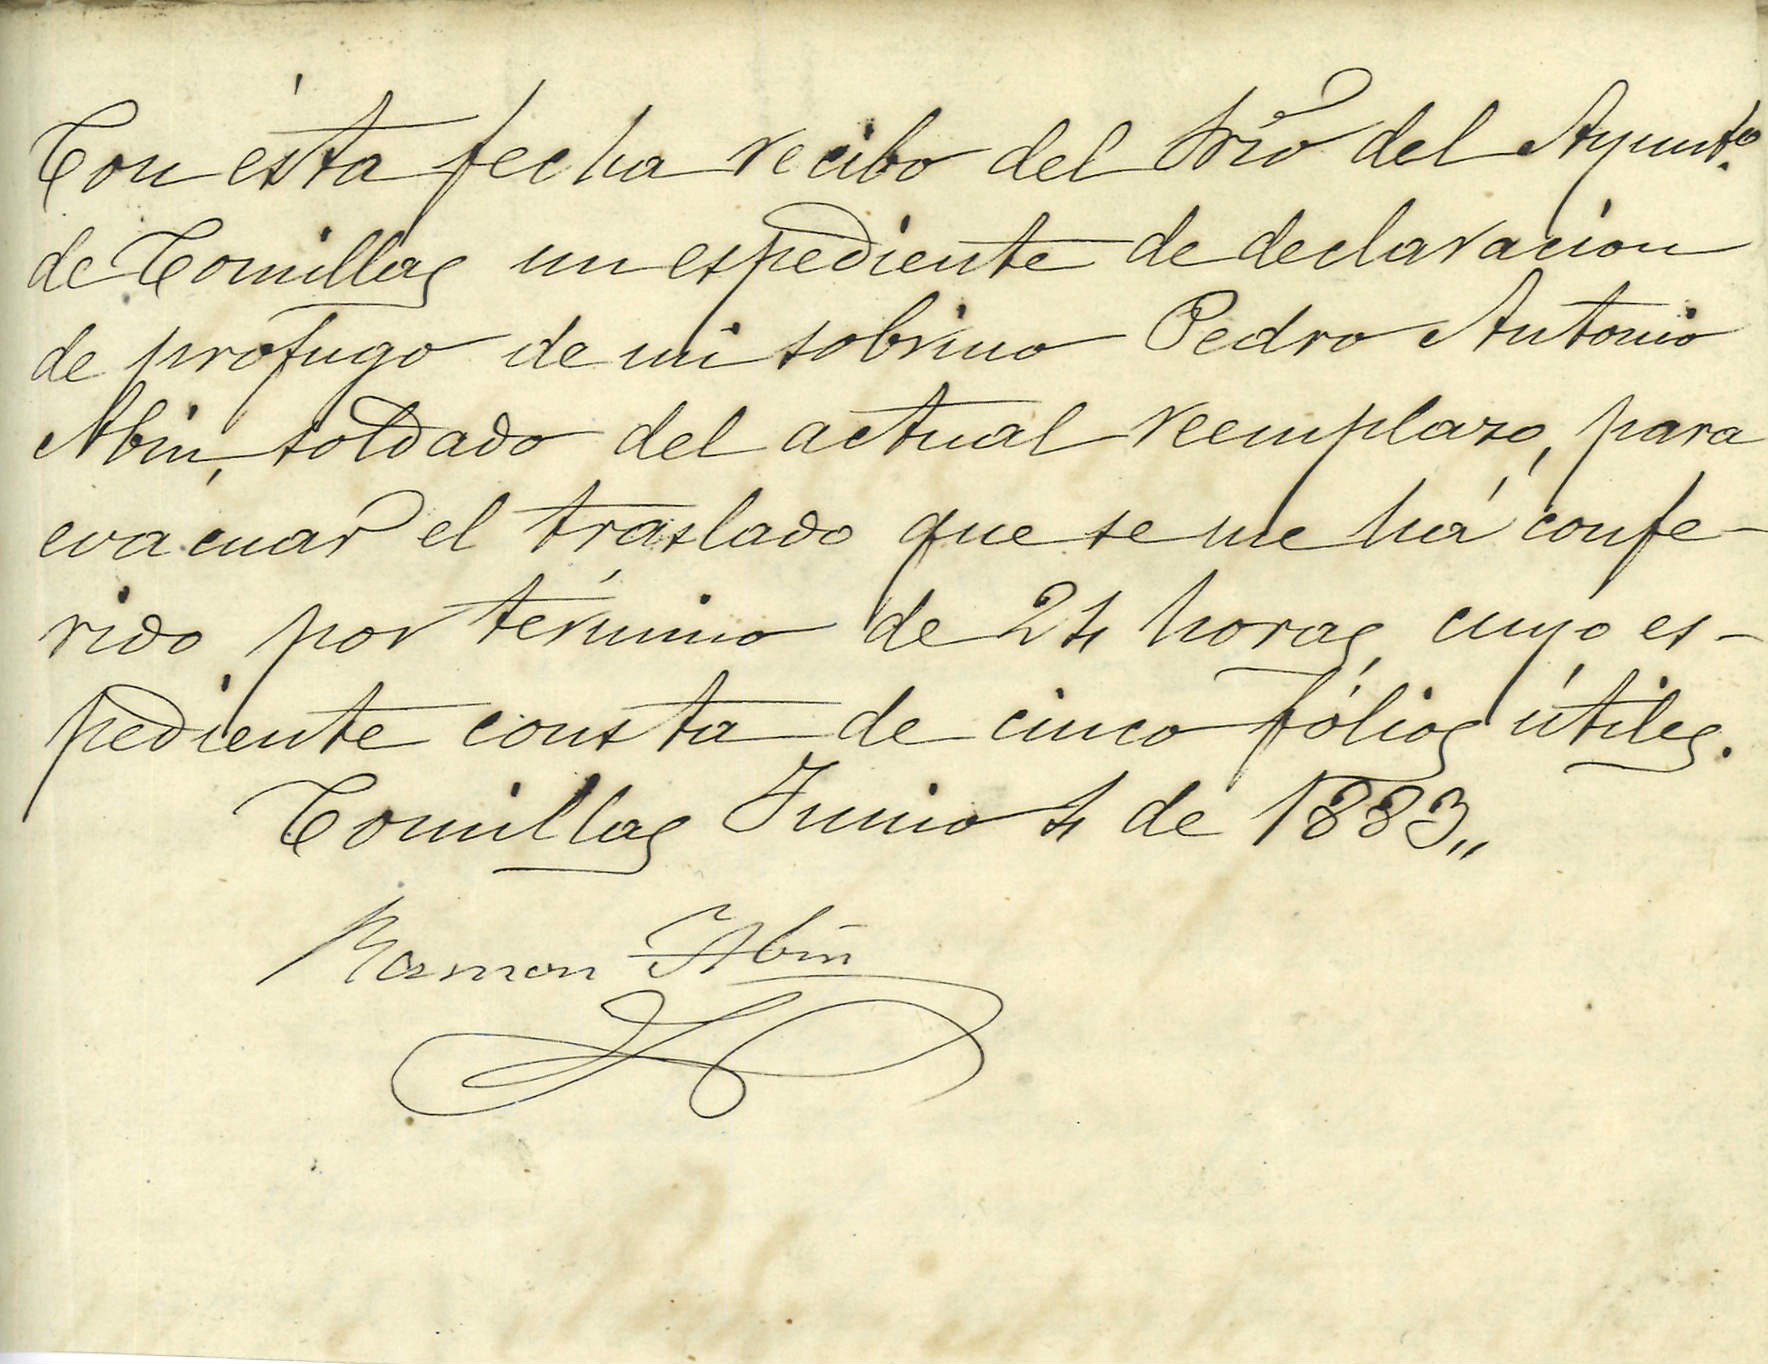 Con ésta fecha recibo del Srio del Ayunto.
de Comillas un espediente de declaracion
de profugo de mi sobrino Pedro Antonio
Abin, soldado del actual reemplazo, para
evacuar el traslado que se me há confe-
rido por término de 24 horas, cuyo es-
pediente consta de cinco fólios útiles.
Comillas Junio 4 de 1883,,
Ramon Abin